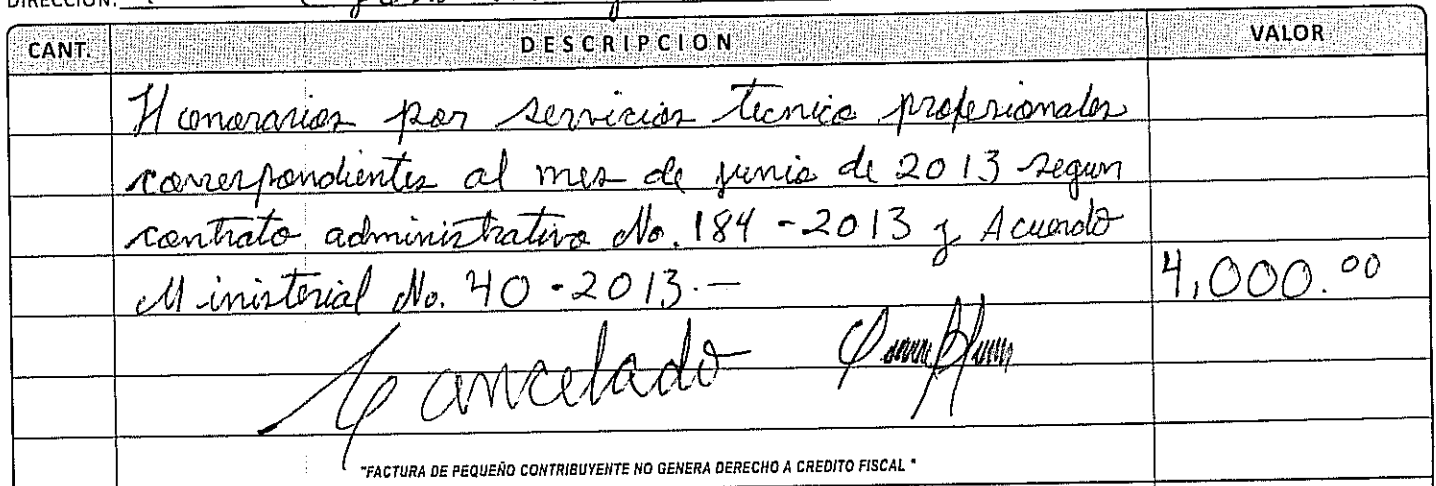 DIRECCIÓN:
CANT. DESCRIPCION VALOR
Honorarios por servicios tecnico profesionales
correspondientes al mes de junio de 2013 segun
contrato administrativo No. 184-2013 y Acuerdo
Ministerial No. 40-2013.— 4,000.00
Cancelado
"FACTURA DE PEQUEÑO CONTRIBUYENTE NO GENERA DERECHO A CREDITO FISCAL"